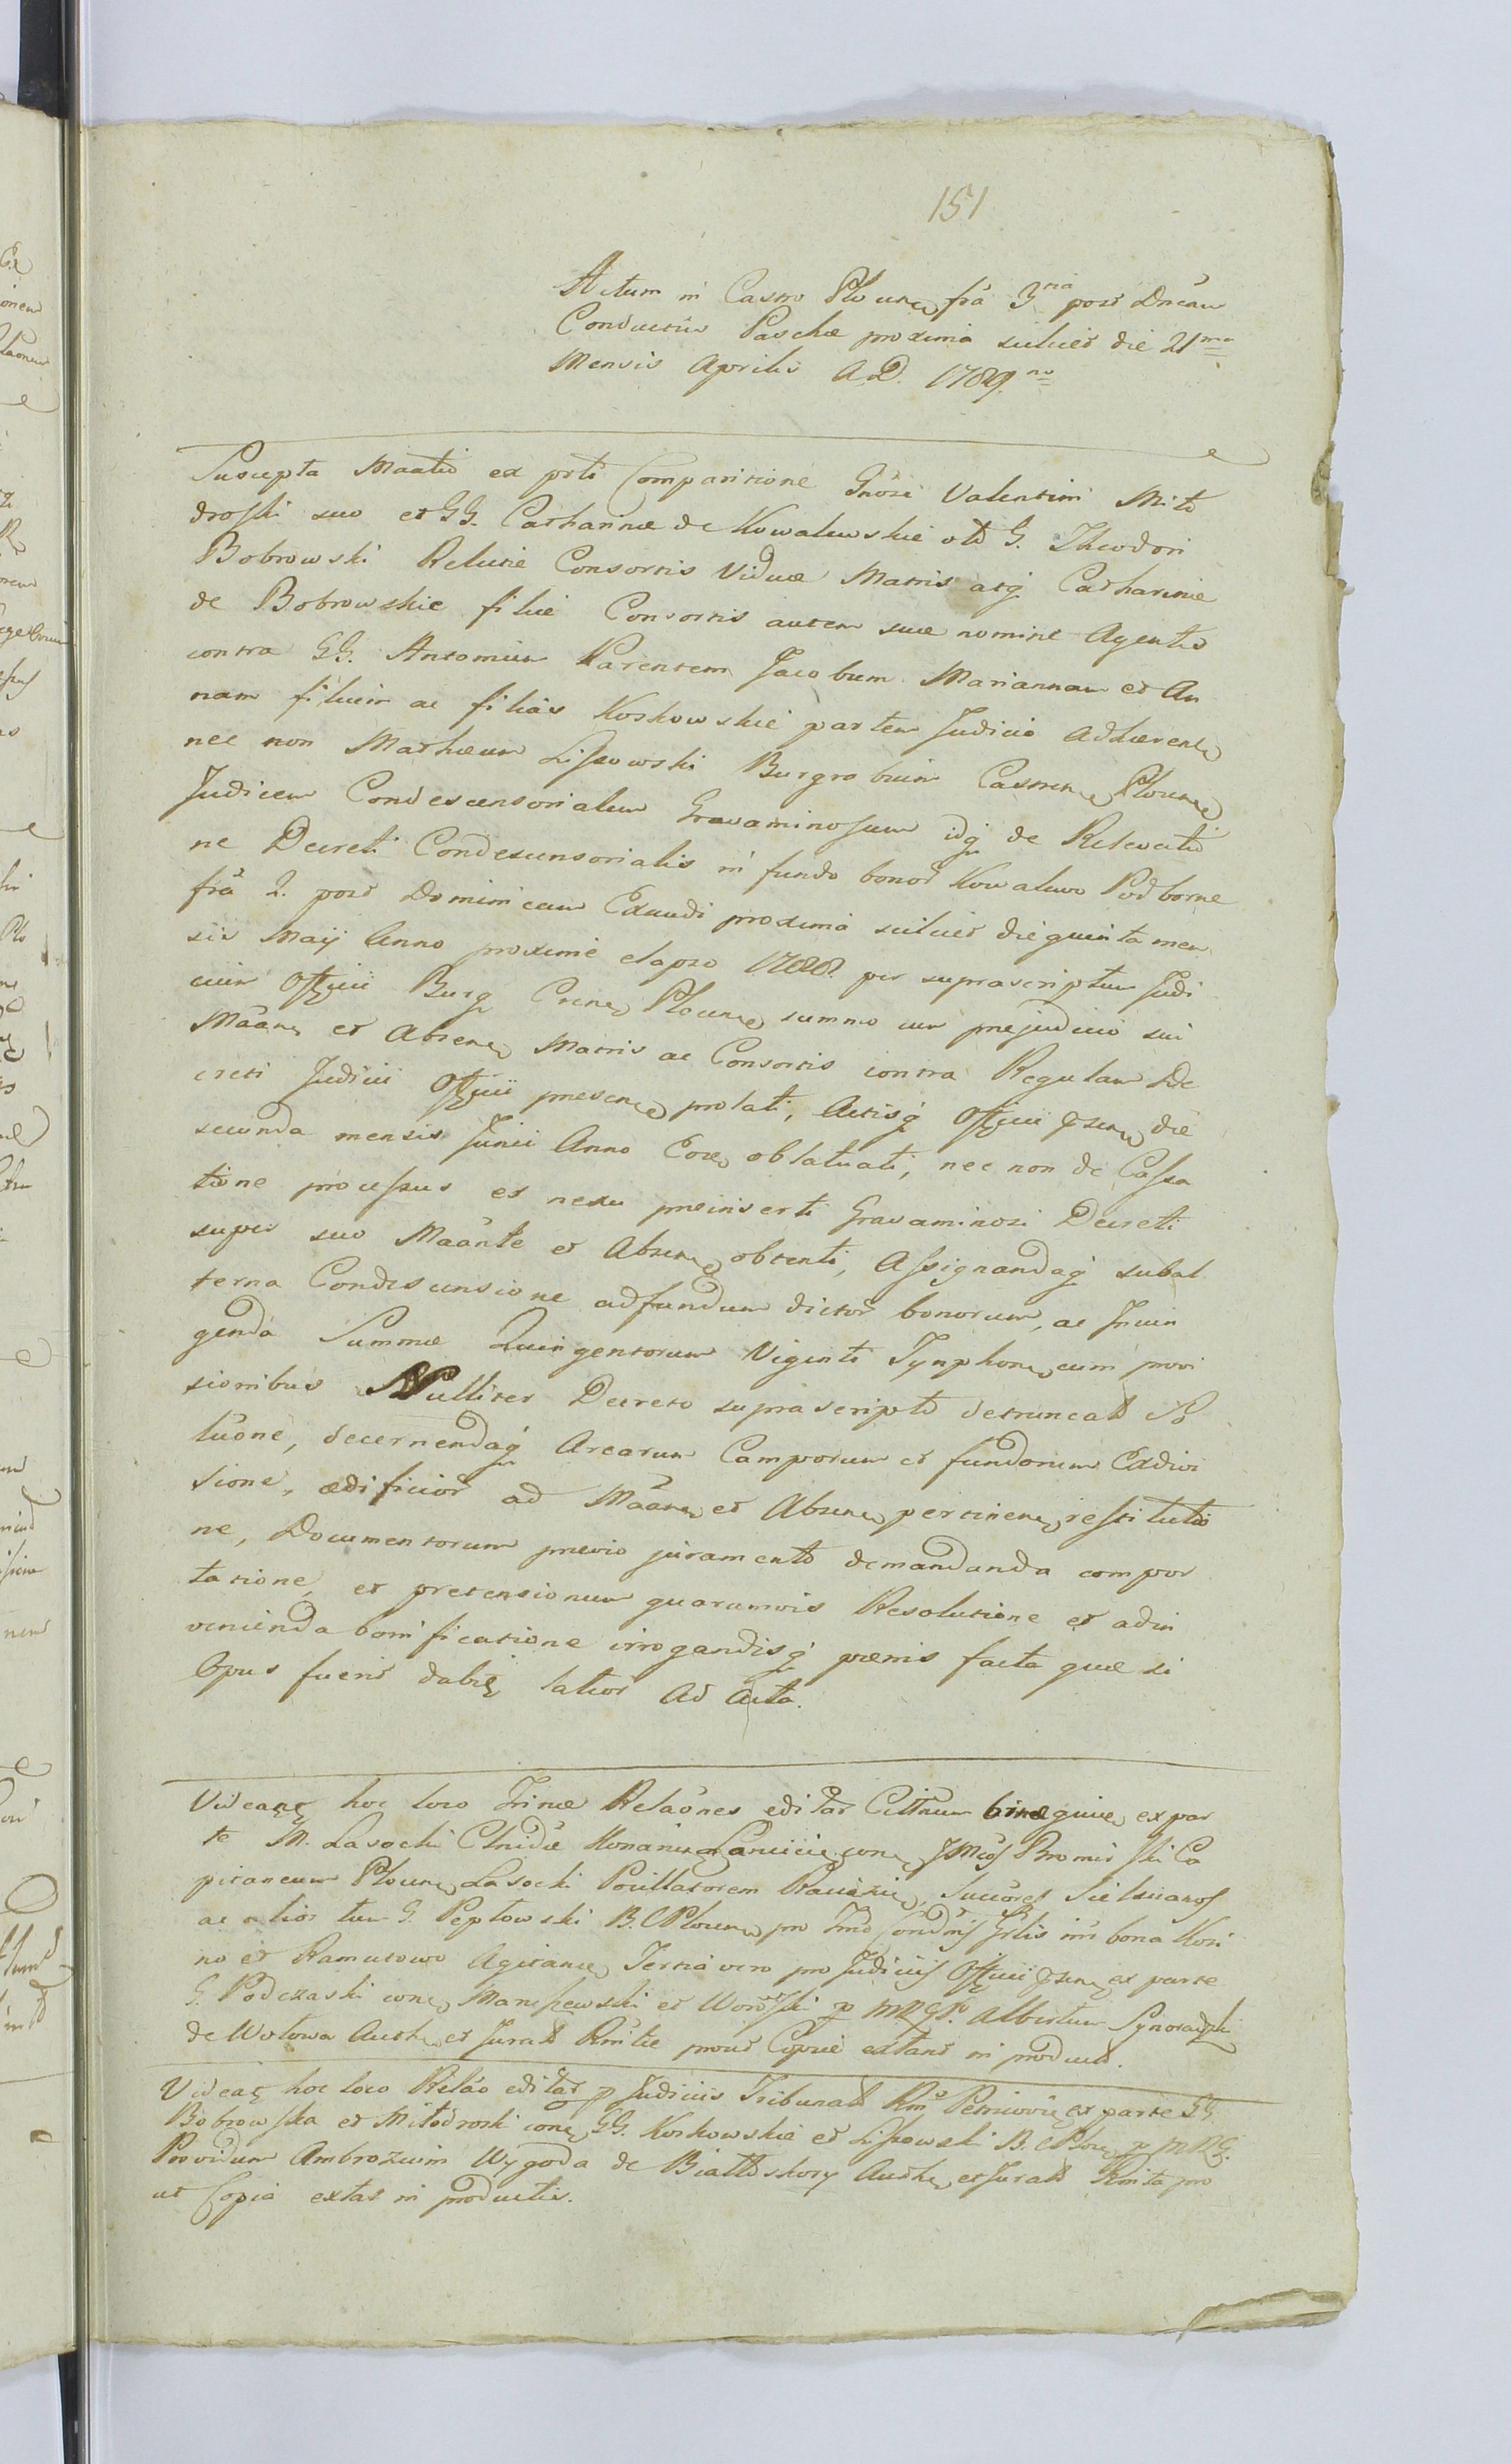 151
Actum in Castro Plocen fra 3tia post Dncam
Conductus Paschæ proxima scilicet die 21ma
Mensis Aprilis A.D. 1789no
Suscepta Maatio ex prti Comparitione Gnosi Valentini Mito
droski suo et GG. Catharinæ de Kowalewskie olt G. Theodori
Bobrowski Relictæ Consortis Viduæ Matris atq Catharinæ
de Bobrowskie filiæ Consortis autem suæ nomine Agentis
contra GG. Antonium Parentem Jacobum Mariannam et An
nam filium ac filias Koskowskie partem Judicio Adhærent
nec non Mathæum Lissowski Burgrabium Castren Plocen
Judicem Condescensorialem Gravaminosum idq de Relevatio
ne Decreti Condescensorialis in fundo bonor Kowalewo Podborne
fra 2. post Dominicam Exaudi proxima scilicet die quinta men
sis Maij Anno proxime elapso 1788. per suprascriptum Judi
cium Offcii Burg Cnen Plocen summo cum prejudicio sui
Maan et Absen Matris ac Consortis contra Regulam De
creti Judicii Offcii presen prolati, Actisq Offcii psen die
secunda mensis Junii Anno Eod oblatuati, nec non de Cassa
tione processus et nexu preinserti Gravaminosi Decreti
super suo Maante et Absen obtenti, Assignandaq subal
terna Condescensione ad fundum dictor bonorum, ac Injun
genda Summæ Quingentorum Viginti Tynphon cum provi
sionibus Nulliter Decreto suprascripto detruncat So
luone, decernendaq Arearum Camporum et fundorum Exdivi
sione, ædificior ad Maan et Absen pertinen restitutio
ne, Documentorum previo juramento demandanda compor
tatione, et pretensionum quarumvis Resolutione et adin
venienda bonificatione irrogandisq pœnis facta quæ si
Opus fuerit dabit latior Ad Acta.
Videant hoc loco Trinæ Relaones editar Cittnum binæ quive ex par
te M. Lasocki con Bromirski Ca
pitaneum Plocen Lasocki Pocillatorem
ac alios tum G. Peptowski B. C Plocen pro in bona Kosi
no et Ramutowo Agitan Tertia vero pro Judiciis Offcii psen ex parte
G. Podczaski con Maruszewski et p MRGP. Albertum
de Wotowa Auth et Jurat Rmtæ prout Copiæ extant in product.
Videat hoc loco Relao editar p Judiciis Tribunalt Rni ex parte GG
Bobrowska et Mitodroski con GG. Koskowskie et Lissowski B. C Ploc p MRG.
Providum Ambrozium Wygoda de Biattskory Auth et Jurat Rmta pro
ut Copia extat in productis.